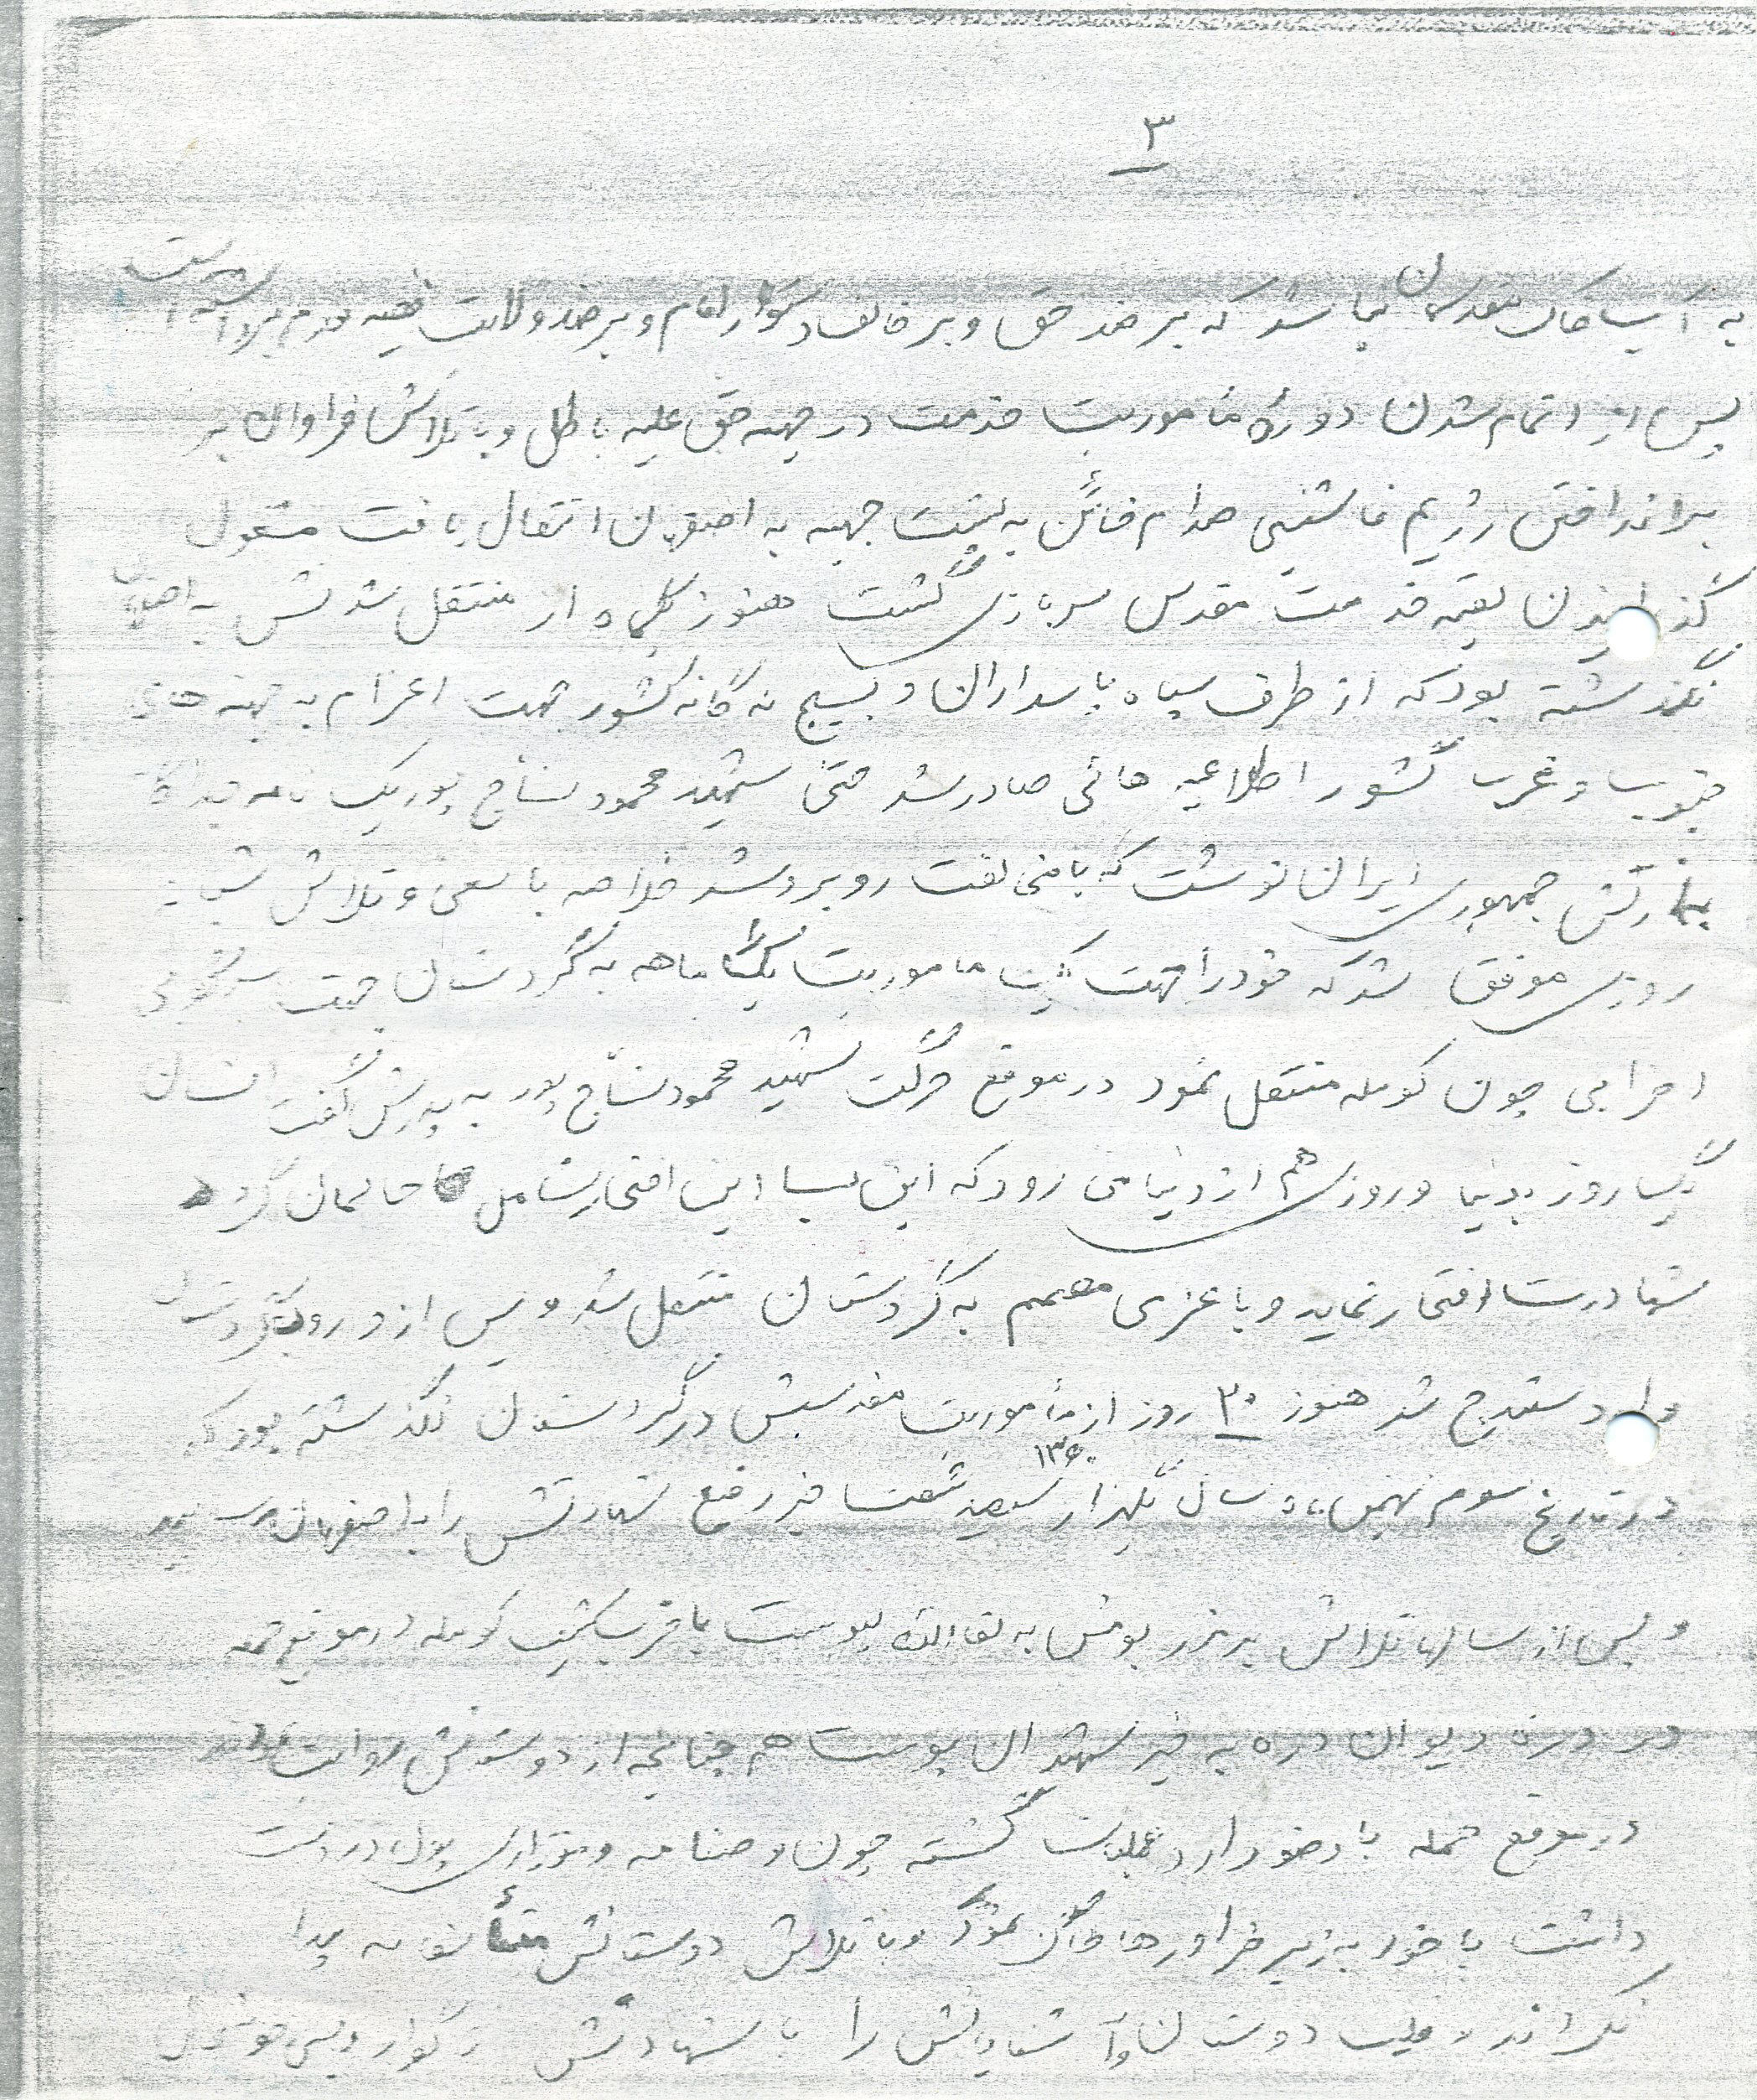 ۳
به آب و خاک مقدسمان نباشد که بر ضد حق و بر خلاف دستور امام و بر ضد ولایت فقیه قدم برداشته است
پس از اتمام شدن دوره مأموریت خدمت در جبهه حق علیه باطل و با تلاش فراوان بر
براندافتن رژیم فاشیستی صدام خائن به پشت جبهه به اصفهان انتقال یافت مشغول
گذرانیدن بقیه خدمت مقدس سربازی گشت هنوز یکماه از منتقل شدنش به اصفهان
نگذشته بود که از طرف سپاه پاسداران و بسیج نه گانه کشور جهت اعزام به جبهه های
جنوب و غرب کشور اطلاعیه هائی صادر شد حتی شهید محمود نساج پور یک نامه جداگانه
بارتش جمهوری ایران نوشت که با مخالفت روبرو شد خلاصه با سعی و تلاش شبانه
روزی موفق شد که خود را جهت یک ماموریت یکماهه به کردستان جهت سرکوبی
احزابی چون کومله منتقل نمود در موقع حرکت شهید محمود نساج پور به پدرش گفت انسان
یک روز بدنیا و روزی هم از دنیا می رود که این بسا این افتخار شامل حالمان گردد
شهادت افتخار نماید و با عزمی مصمم به کردستان منتقل شد و پس از ورود بکردستان
وارد سنندج شد هنوز ۲۰ روز از مأموریت مقدسش در کردستان نگذشته بود که
در تاریخ سوم بهمن ماه سال یکهزار سیصد شصت ۱۳۶۰ خبر رفیع شهادتش را به اصفهان رسانید
و پس از سالها تلاش به آرزویش به لقاءالله پیوست با ضرب کشیف کومله در موقع حمله
در دیوان دره به خیل شهیدان پیوست هم چنانچه از دوستانش روایت
در موقع حمله با وضو وارد عملیات گشته چون وصنامه و مقداری پول در دست
داشت با خود به زیر خراورها خاک نمود که با تلاش دوستانش متأسفانه پیدا
نکردند قلب دوستان و آشنایانش را با شهادتش